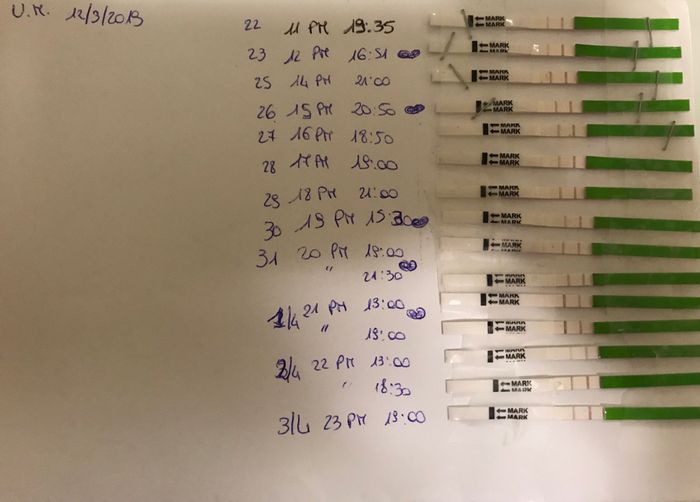 U.M. 12/3/2019
22 11 PM 19:35 ← MARK
← MARK
23 12 PM 16:51 ← MARK
← MARK
25 14 PM 21:00 ← MARK
← MARK
26 15 PM 20:50 ← MARK
← MARK
27 16 PM 18:50 ← MARK
← MARK
28 17 PM 19:00 ← MARK
29 18 PM 21:00 ← MARK
← MARK
30 19 PM 15:30 ← MARK
← MARK
31 20 PM 19:00 ← MARK
← MARK
" 21:30 ← MARK
← MARK
1/4 21 PM 13:00 ← MARK
← MARK
" 19:00 ← MARK
← MARK
2/4 22 PM 13:00 ← MARK
← MARK
" 18:30 ← MARK
← MARK
3/4 23 PM 19:00 ← MARK
← MARK